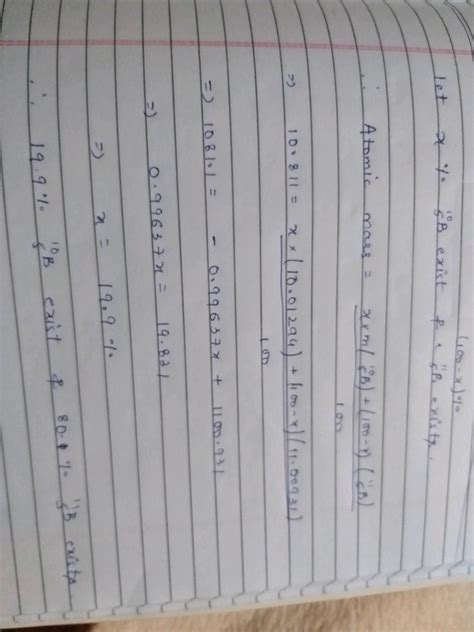 (100-x)%
Let x % ¹⁰₅B exist & ¹¹₅B exists.
∴ Atomic mass = x×m(¹⁰₅B) + (100-x) (¹¹₅B)
100
⇒ 10.811 = x×(10.01294) + (100-x)(11.00931)
100
⇒ 1081.1 = - 0.99637x + 1100.931
⇒ 0.99637x = 19.831
⇒ x = 19.9 %
∴ 19.9% ¹⁰₅B exist & 80.1% ¹¹₅B exists